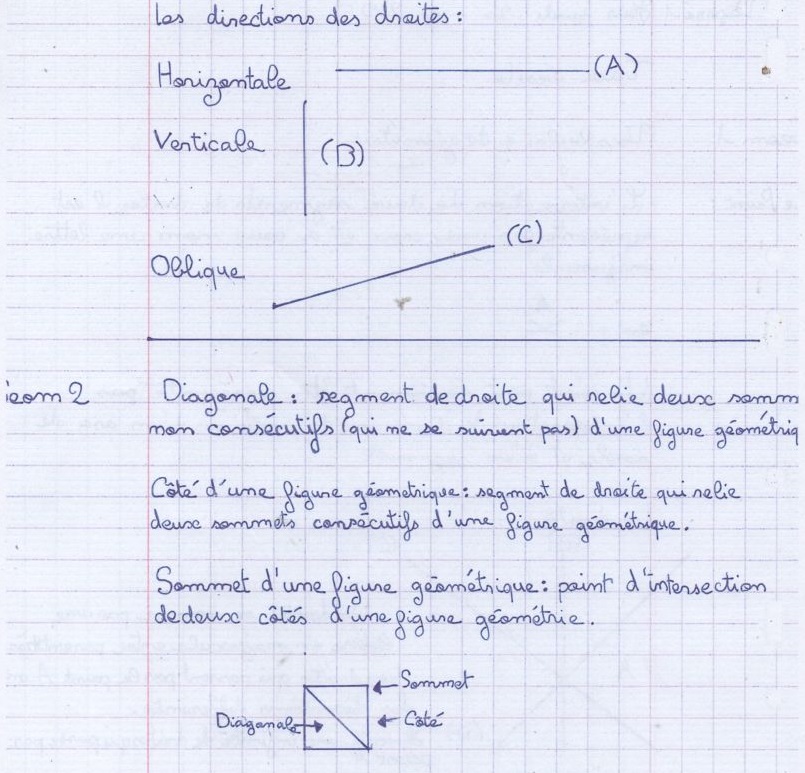 Les directions des droites :
Horizontale (A)
Verticale (B)
Oblique (C)
éom 2 Diagonale : segment de droite qui relie deux somm
non consécutifs (qui ne se suivent pas) d'une figure géométriq
Côté d'une figure géometrique : segment de droite qui relie
deux sommets consécutifs d'une figure géométrique.
Sommet d'une figure géométrique : point d'intersection
de deux côtés d'une figure géométrie.
Sommet
Diagonale Côté